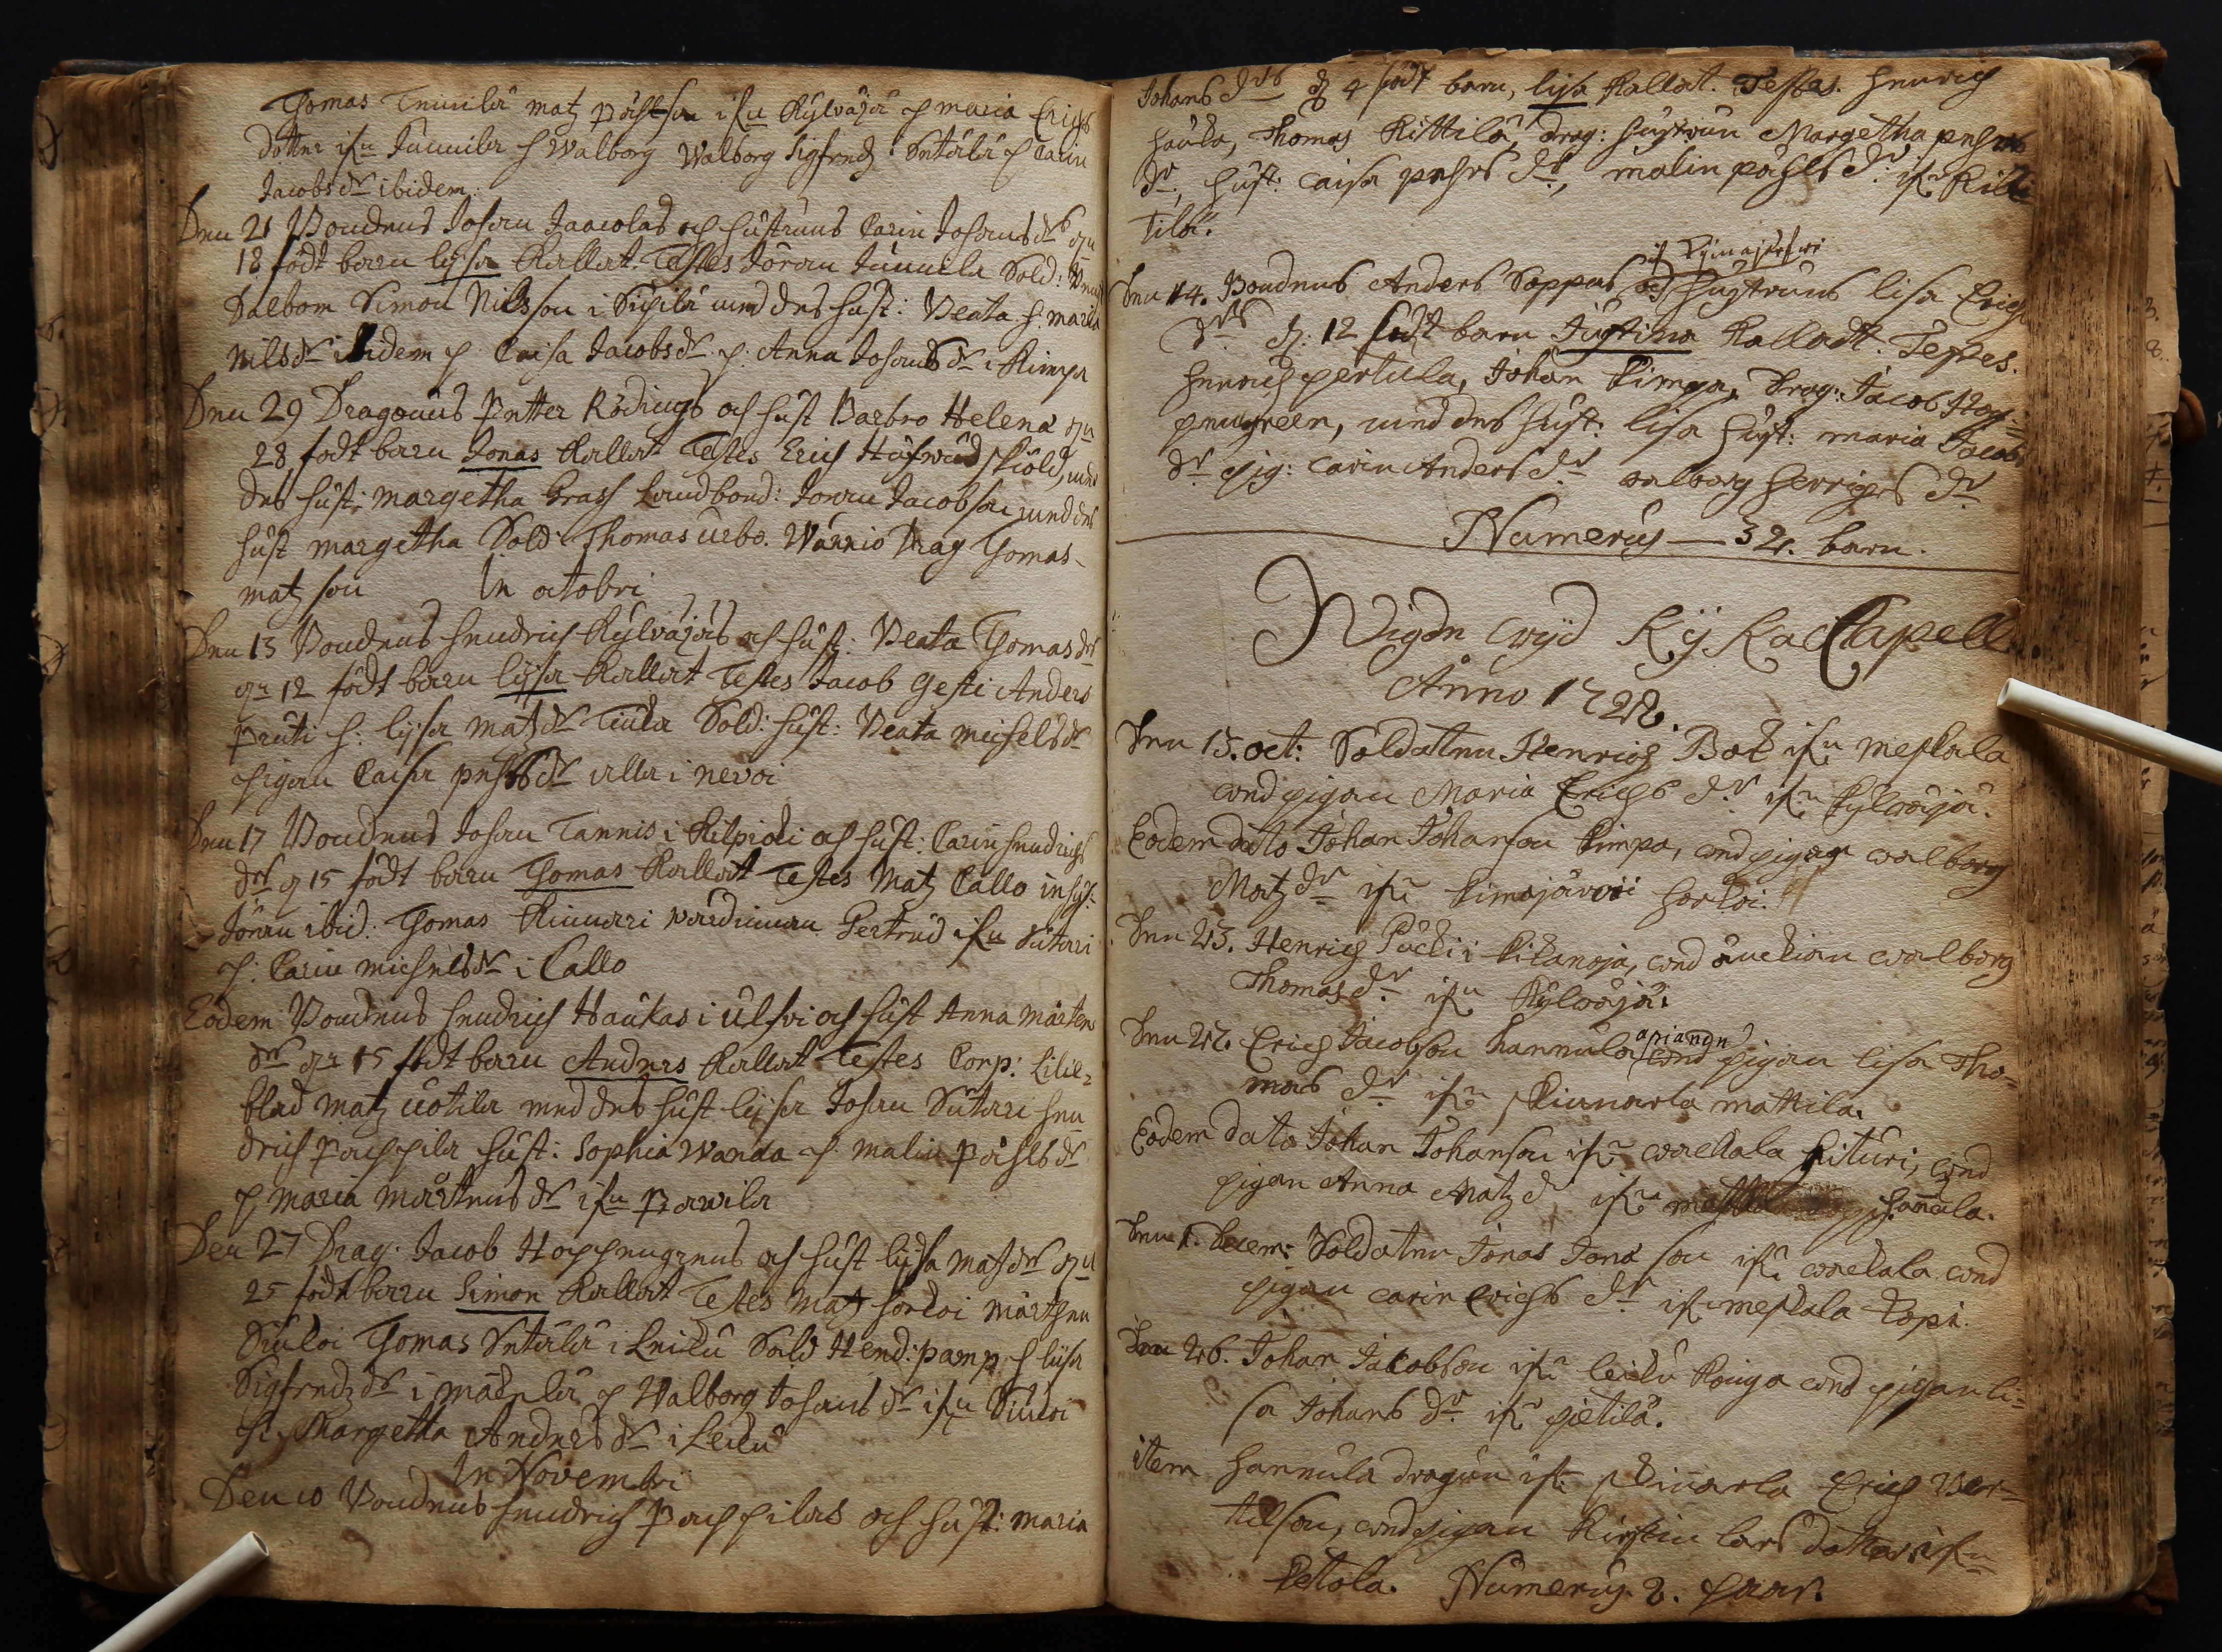 Thomas Tnuila matz Påhlson ifrn Kylväjä p maria Erichs
dotter ifrn Junnila h Walborg Walborg Sigfredz Sutälä p Carin
Jacobs dr ibidem.
Den 21 Bondens Johan Jaacolas och hustruns Carin Johans drs
18 födt barn lijsa Kallat. Testes Jöran Junnila Sold:
Dalbom Simon Nilsson i med des hust: Beata h. maria
Nils dr ibidem p. Caisa Jacobs dr p. Anna Johans dr i Kimpa
Den 29 Dragouns Petter Rödings och hust Barbro Helena
28 födt barn Jonas Kallat Testes Erich skiöld, med
des hust: margetha Grass Landbond: Joran Jacobson med des
hust margetha Sold: Thomas urbo. Wärrio Drag Thomas
matz son In octobri
Den 13 Bondens hendrich Kylväjäs och hust: Beata Thomas drs
12 födt barn lijsa Kallat Testes Jacob Gesti Anders
Pruti h: lijsa matz dr Tiuda Sold: hust: Beata michels dr
pigan Caisa pehrs dr alla i nevoi
Den 17 Bondens Johan Tannis i Kilpioki och hust: Carin hendrichs
drs 15 födt barn Thomas Kallat Testes Matz Callo inhys:
Jöran ibid: Thomas Kinnari Gertrud ifrn Sutari
p: Carin michels dr i Callo
Eodem Bondens hendrich Haukas i ülfvi och hust Anna Mårtens
drs 15 födt barn Anders Kallat Testes Corp: Lilie-
blad matz uotila med des hust lijsa Johan Sutari hen
drich Pachpila hust: Sophia Wanda p. malin påhls dr
p maria mårtens dr ifrn Pawila
Den 27 Drag. Jacob Hoppengrens och hust lijsa matz drs
25 födt barn Simon Kallat Testes Matz hordoi mårthen
Siukoi Thomas Sutälä i Leikü Sold Hend: pamp h lijsa
Sigfredz dr i p Walborg Johans dr ifrn Siukoi
h. Margetha Anders dr i Leikü
In Novembri
Den 10 Bondens hendrich Pachpilas och hust: maria
Johans drs d 4 födt barn, lijsa Kallat. Testes. henrich
hauka, Thomas Kittilä, drag: hustrun Margetha pehrs
dr, hust: caisa pehrs dr, malin påhls dr ifrn Kitt
tilä.
if Kimajerfwi
Den 14. Bondens Anders Soppas och hustruns lisa Erichs
drs d. 12 födt barn Justina Kalladt. Testes.
henrich pertula, Johan Kimpa, Drag: Jacob Hop=
pengreen, med des hust: lisa hust: maria Jacobs
dr pig: Carin Anders dr walborg herrigers dr
Numerus — 32. barn.
Wigde wijd KijKa Capell.
Anno 1728.
Den 15. oct: Soldaten Henrich Bok ifrn meskala
wed pigan Maria Erichs dr ifrn Kylwäjä.
Eodem dato Johan Johanson Kimpa, wed pigan walborg
Matz dr ifrn Kimajärwi horkoi.
Den 23. Henrich Pücki i Kikanoja, wed änckian walborg
Thomas dr ifrn Kylwäjä.
Den 27. Erich Jacobson hannula wed pigan lisa Tho=
mas dr ifrn skinnarla mattila.
Eodem dato Johan Johanson ifrn woekala Kituri, wed
pigan Anna Matz d ifrn hannula.
Den 1. Decem: Soldaten Jonas Jona son ifrn woekala wed
pigan carin Erichs dr ifrn meskala Kopi.
Den 26. Johan Jacobson ifrn leikü Kouga wed pigan li=
sa Johans dr ifrn pietilä.
item hannula dragun ifrn skinarla Erich Ber=
tilson, wed pigan Kirstin lars dotter ifrn
Ketola. Numerus. 8. paar.